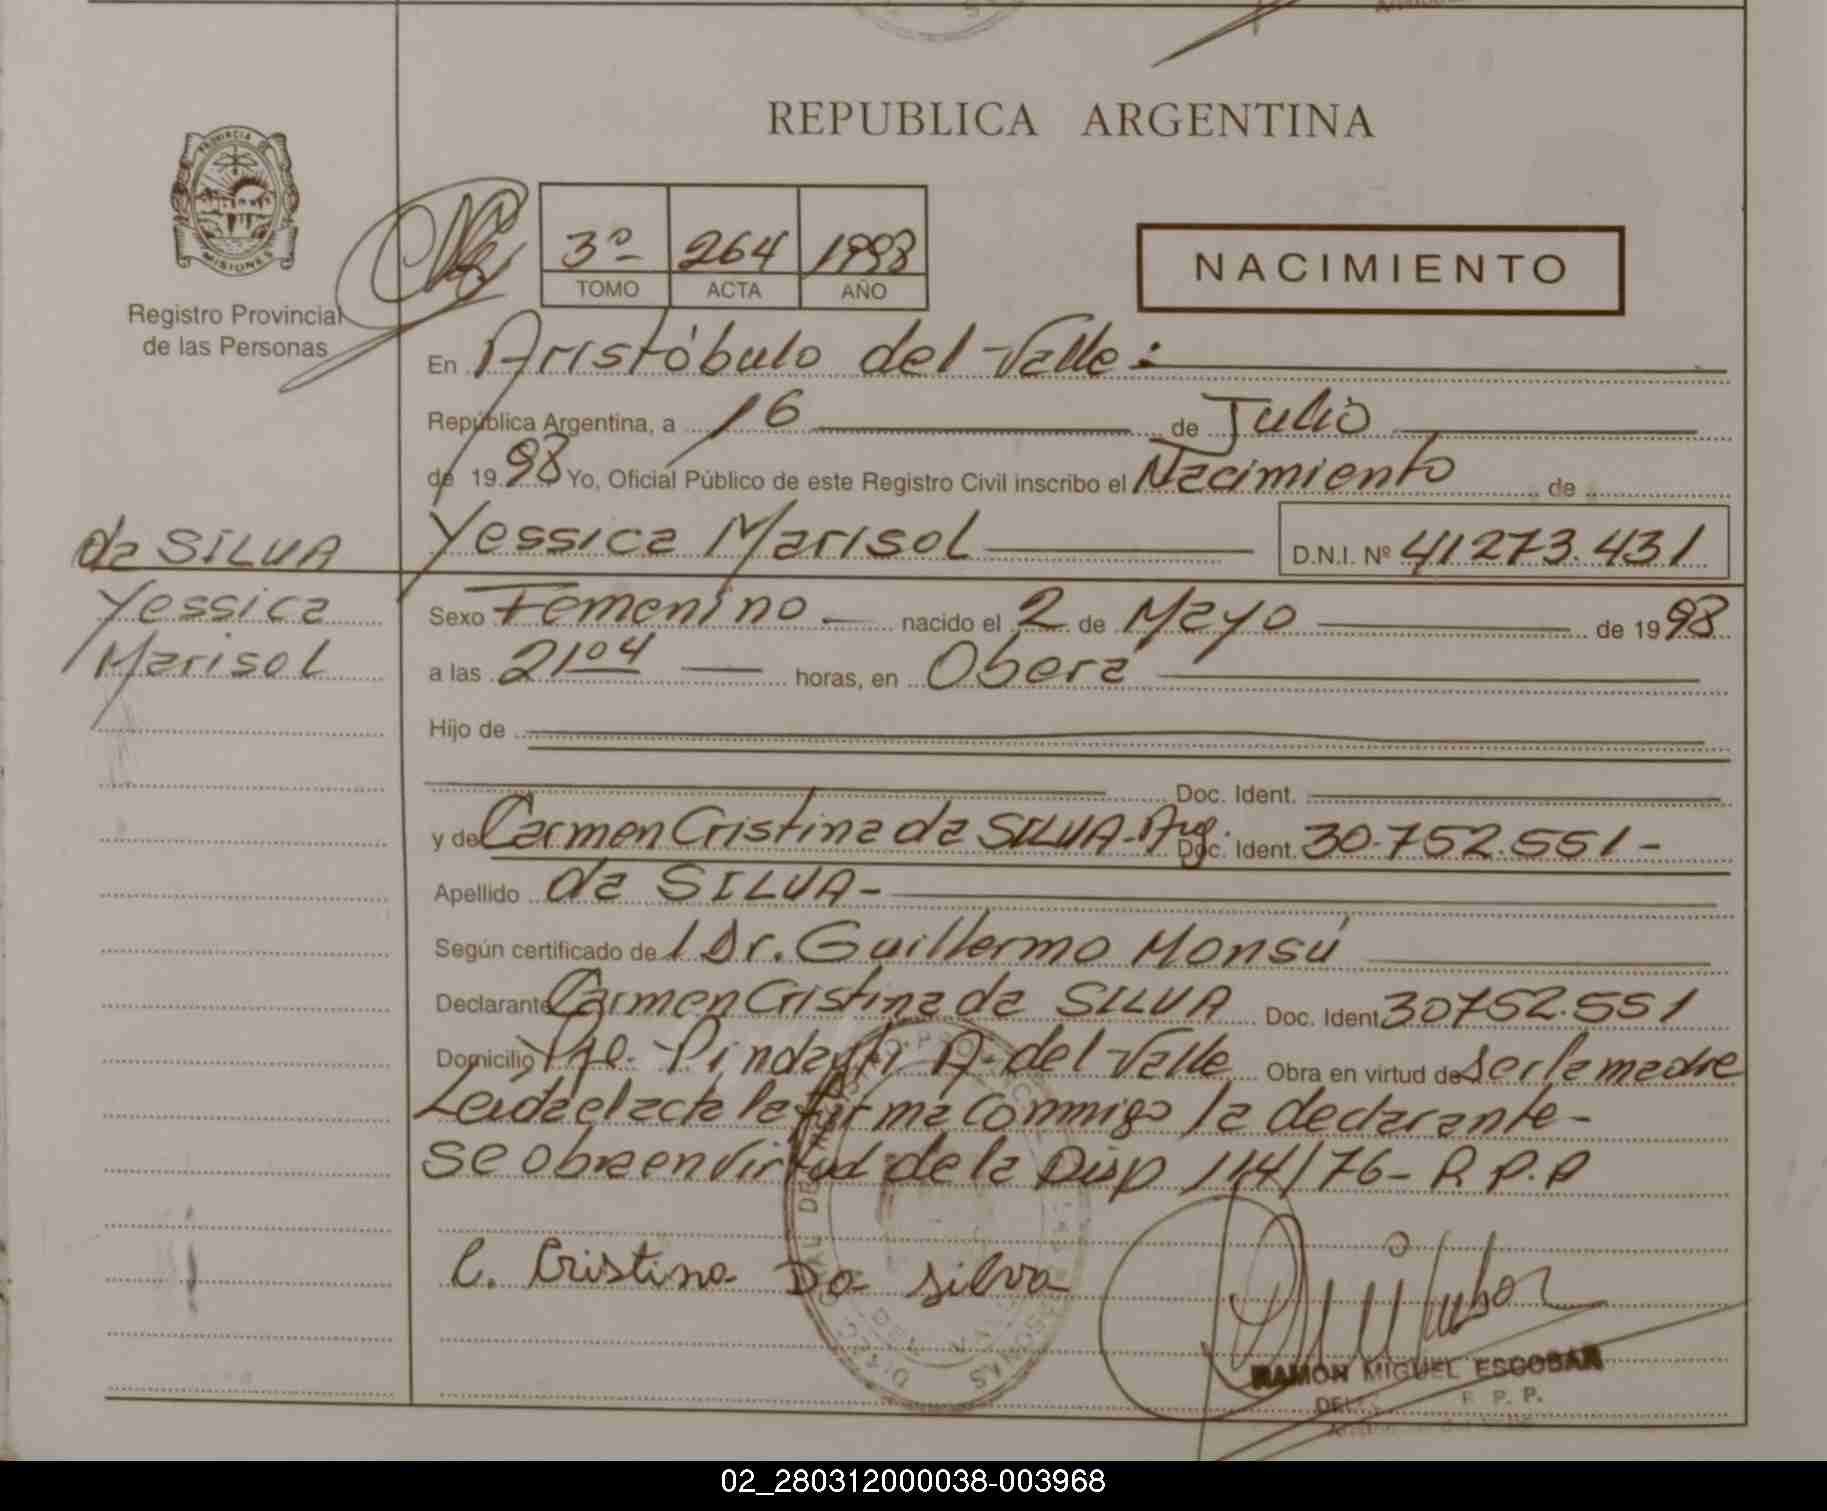 REPUBLICA ARGENTINA
PROVINCIA DE
MISIONES
Registro Provincial
de las Personas
3º 264 1998
TOMO ACTA AÑO
NACIMIENTO
En Aristóbulo del Valle:
República Argentina, a 16 de Julio
de 1998 Yo, Oficial Público de este Registro Civil inscribo el Nacimiento de
da SILVA
Yessica
Marisol
Yessica Marisol D.N.I. Nº 41273.431
Sexo Femenino nacido el 2 de Mayo de 1998
a las 21 04 horas, en Oberá
Hijo de
Doc. Ident.
y de Carmen Cristina da SILVA-Arg. Doc. Ident. 30.752.551-
Apellido da SILVA-
Según certificado de l Dr. Guillermo Monsú
Declarante Carmen Cristina da SILVA Doc. Ident 30752.551
Domicilio Pindayti A. del Valle Obra en virtud de ser la madre
Leida el acta la firma conmigo la declarante-
se obra en virtud de la Disp 114/76- R.P.P
C. Cristina Da silva
RAMON MIGUEL ESCOBAR
R. P. P.
02_280312000038-003968